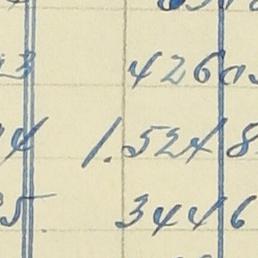 3 42605
4 1.524 8
5 344 6